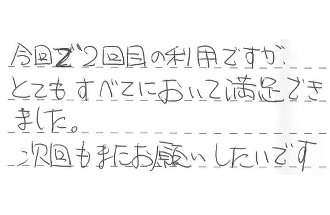 今回で2回目の利用ですが、
とてもすべてにおいて満足でき
ました。
次回もまたお願いしたいです